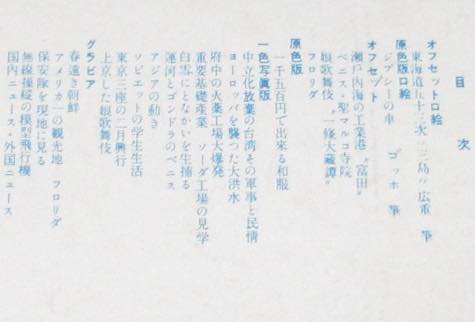 目次
オフセット口絵
東海道五十三次 三島 広重 筆
原色版口絵
ジプシーの車 ゴッホ 筆
オフセット
瀬戸内海の工業港“富田”
ベニス・聖マルコ寺院
娘歌舞伎“一條大蔵譚”
フロリダ
原色版
一千五百円で出来る和服
一色写真版
中立化放棄の台湾その軍事と民情
ヨーロッパを襲つた大洪水
府中の火薬工場大爆発
重要基礎産業 ソーダ工場の見学
白雲にとなかいを生捕る
運河とゴンドラのベニス
アジアの動き
ソビエットの学生生活
東京三座の二月興行
上京した娘歌舞伎
グラビア
春遠き朝鮮
アメリカ一の観光地 フロリダ
保安隊を現地に見る
無線操縦の模型飛行機
国内ニュース・外国ニュース